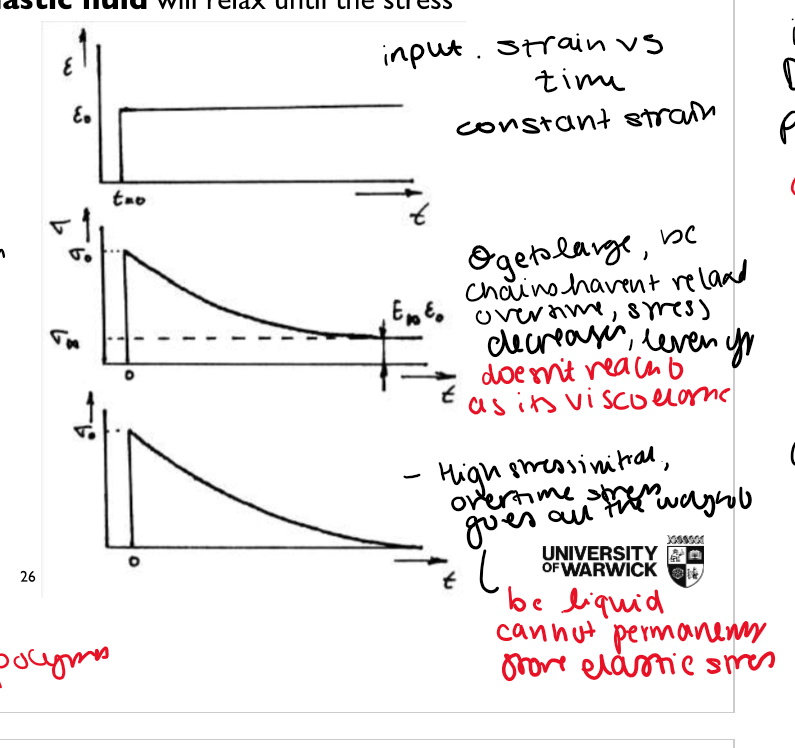 lastic fluid will relax until the stress
input. strain vs
time
constant strain
ε
ε₀
t=0
t
σ
σ₀
σ∞
E∞ ε₀
0
t
σ gets large, bc
chains havent relaxd
overtime, stress
decreases, levels off
doesn't reach 0
as its viscoelastic
σ₀
0
t
- High stress initial,
overtime stress
goes all the way to 0
UNIVERSITY
OF WARWICK
26
bc liquid
cannot permanently
store elastic stress